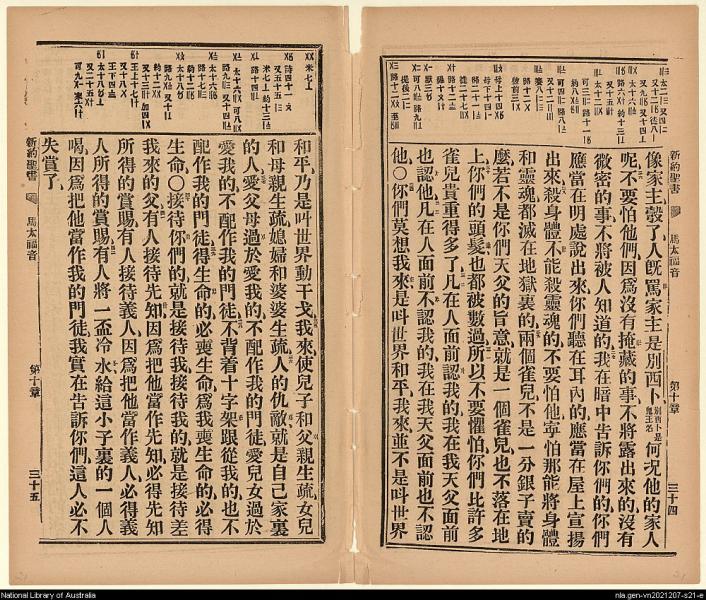 新約聖書
馬太福音
第十章
三十四
像家主彀了人旣罵家主是別西卜別西卜是鬼王名何况他的家人
呢不要怕他們因爲沒有掩藏的事不將露出來的沒有
微密的事不將被人知道的我在暗中告訴你們的你們
應當在明處說出來你們聽在耳內的應當在屋上宣揚
出來殺身體不能殺靈魂的不要怕他寧怕那能將身體
和靈魂都滅在地獄裏的兩個雀兒不是一分銀子賣的
麼若不是你們天父的旨意就是一個雀兒也不落在地
上你們的頭髮也都被數過所以不要懼怕你們比許多
雀兒貴重得多了凡在人面前認我的我在我天父面前
也認他凡在人面前不認我的我在我天父面前也不認
他〇你們莫想我來是叫世界和平我來並不是叫世界
和平乃是叫世界動干戈我來使兒子和父親生疏女兒
和母親生疏媳婦和婆婆生疏人的仇敵就是自己家裏
的人愛父母過於愛我的不配作我的門徒愛兒女過於
愛我的不配作我的門徒不背着十字架跟從我的也不
配作我的門徒得生命的必喪生命爲我喪生命的必得
生命〇接待你們的就是接待我接待我的就是接待差
我來的父有人接待先知因爲把他當作先知必得先知
所得的賞賜有人接待義人因爲把他當作義人必得義
人所得的賞賜有人將一盃冷水給這小子裏的一個人
喝因爲把他當作我的門徒我實在告訴你們這人必不
失賞了
新約聖書
馬太福音
第十章
三十五
National Library of Australia
nla.gen-vn2021207-s21-e